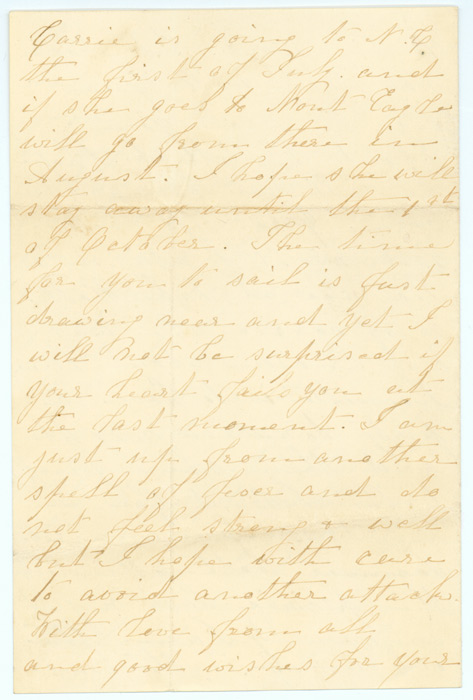 Carrie is going to N.C
the first of July. and
if she goes to Mont Eagle
will go from there in
August. I hope she will
stay away until the 1st
of October. The time
for you to sail is fast
drawing near and yet I
will not be surprised if
your heart fails you at
the last moment. I am
just up from another
spell of fever and do
not feel strong & well
but I hope with care
to avoid another attack.
With love from all
and good wishes for your